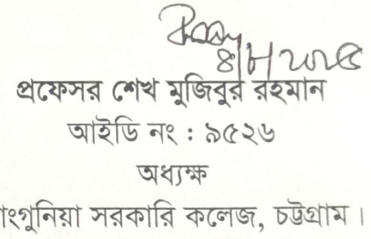 প্রফেসর শেখ মুজিবুর রহমান
আইডি নং : ৯৫২৬
অধ্যক্ষ
াংগুনিয়া সরকারি কলেজ, চট্টগ্রাম।